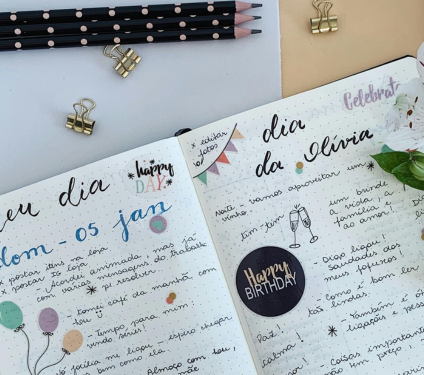 eu dia
happy
DAY
dom - 05 jan
x postar itens na loja
x postar IG loja
- Acordei animada mas já
com várias mensagens do trabalho
p/ resolver
- tomei café da manhã com
- Tempo para mim:
vendo séries!
- Jocília me ligou - espero chegar
bem como ela
Almoço com
mãe
x editar
fotos
dia
da Olívia
Celebrat
Nata - vamos aproveitar um
vinho.
tim-tim
um brinde
à vida, à
família e
ao amor!
Happy
BIRTHDAY
- Diogo ligou!
saudades dos
meus futuros!
- como é bom ler
tas lindas.
- Também é
ligações e
Paz!
calma!
- Coisas importantes